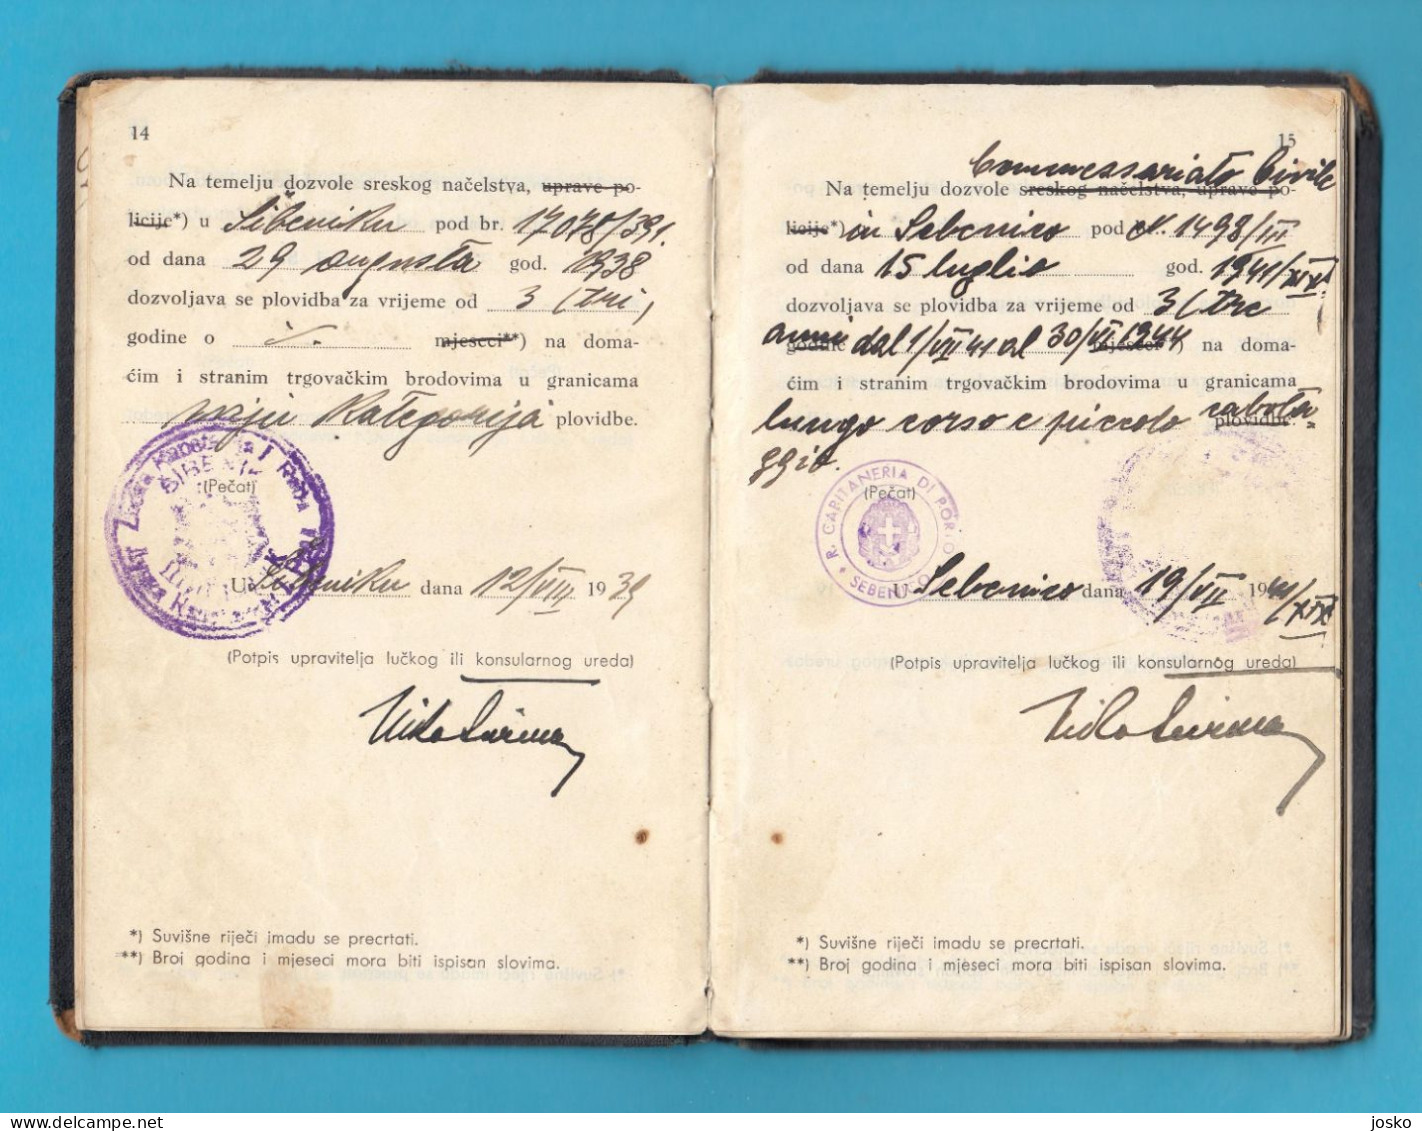 14
Na temelju dozvole sreskog načelstva, uprave po-
licije*) u Šibeniku pod br. 17078/391.
od dana 29 augusta god. 1938
dozvoljava se plovidba za vrijeme od 3 (tri)
godine o ·/. mjeseci**) na doma-
ćim i stranim trgovačkim brodovima u granicama
kategorija plovidbe.
(Pečat)
U Šibeniku dana 12/VIII 1939
(Potpis upravitelja lučkog ili konsularnog ureda)
*) Suvišne riječi imadu se precrtati.
**) Broj godina i mjeseci mora biti ispisan slovima.
15
Commessariato Civile
Na temelju dozvole sreskog načelstva, uprave po-
licije*) in Sebenico pod N. 1498/III
od dana 15 luglio god. 1941/XIX
dozvoljava se plovidba za vrijeme od 3 (tre
anni dal 1/VII 41 al 30/VI 1944
godine mjeseci*) na doma-
ćim i stranim trgovačkim brodovima u granicama
lungo corso e piccolo cabota=
plovidbe.
ggio.
R. CAPITANERIA DI PORTO
SEBENICO
(Pečat)
U Sebenico dana 19/VII 1941/XIX
(Potpis upravitelja lučkog ili konsularnog ureda)
*) Suvišne riječi imadu se precrtati.
**) Broj godina i mjeseci mora biti ispisan slovima.
delcampe.net
josko